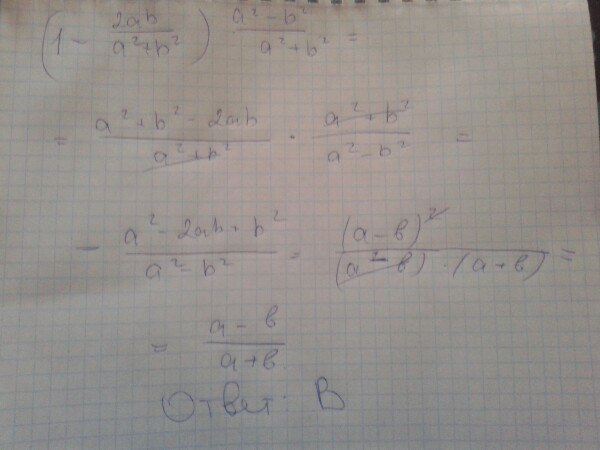 (1 - 2ab/(a²+b²)) (a²-b²)/(a²+b²) =
= (a²+b²-2ab)/(a²+b²) · (a²+b²)/(a²-b²) =
- (a²-2ab+b²)/(a²-b²) = (a-в)²/((a-в)·(a+в)) =
= (a-в)/(a+в)
Ответ: В